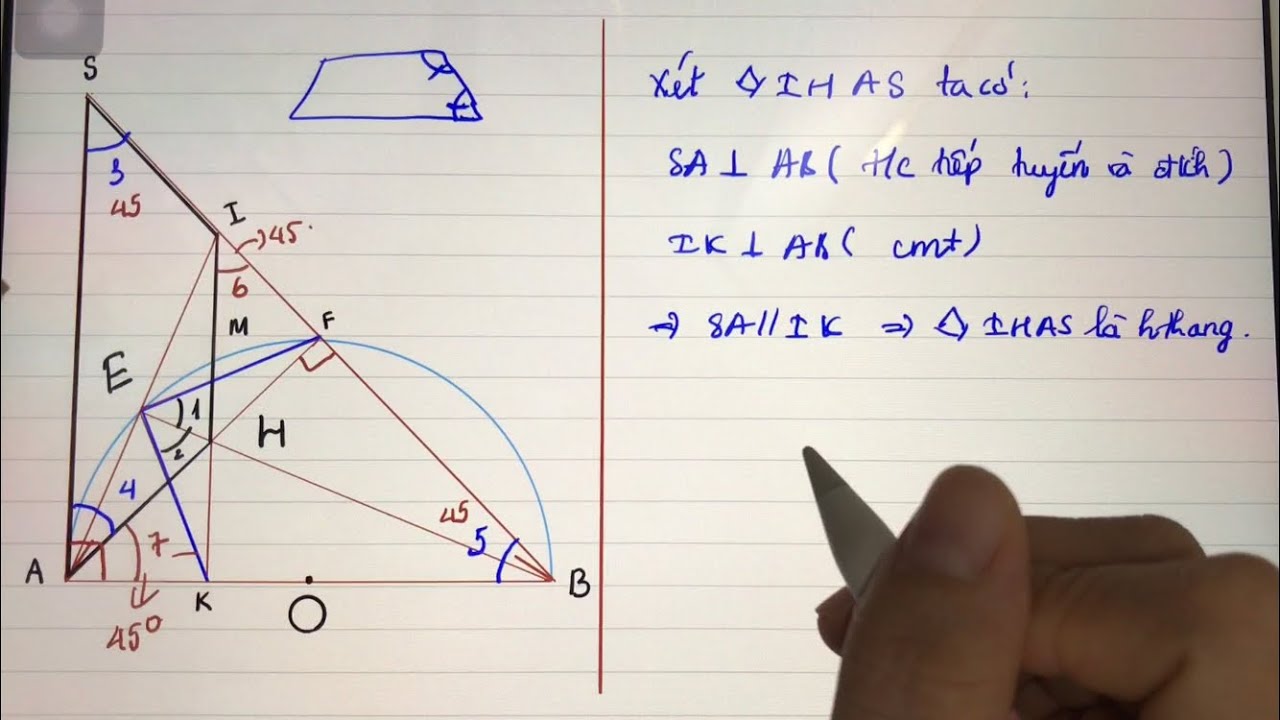 S
3
45
I
45
6
M
F
E
1
2
H
4
45
5
7
A
K
O
B
45°
Xét ◇IHAS ta có:
SA ⊥ AB ( t/c tiếp tuyến và đ.kính)
IK ⊥ AB ( cmt)
⇒ SA // IK ⇒ ◇ IHAS là hthang.